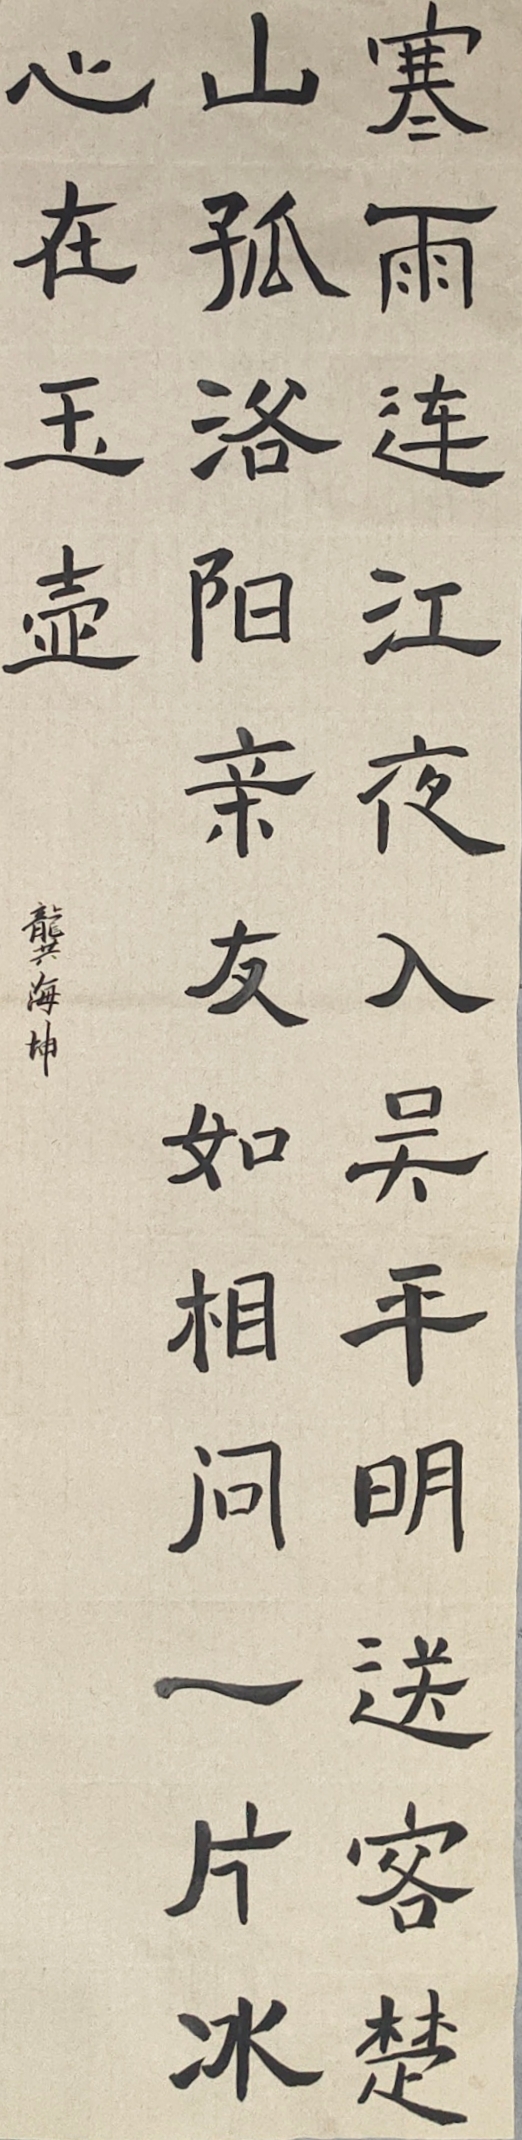 寒雨连江夜入吴平明送客楚
山孤洛阳亲友如相问一片冰
心在玉壶
龔海坤